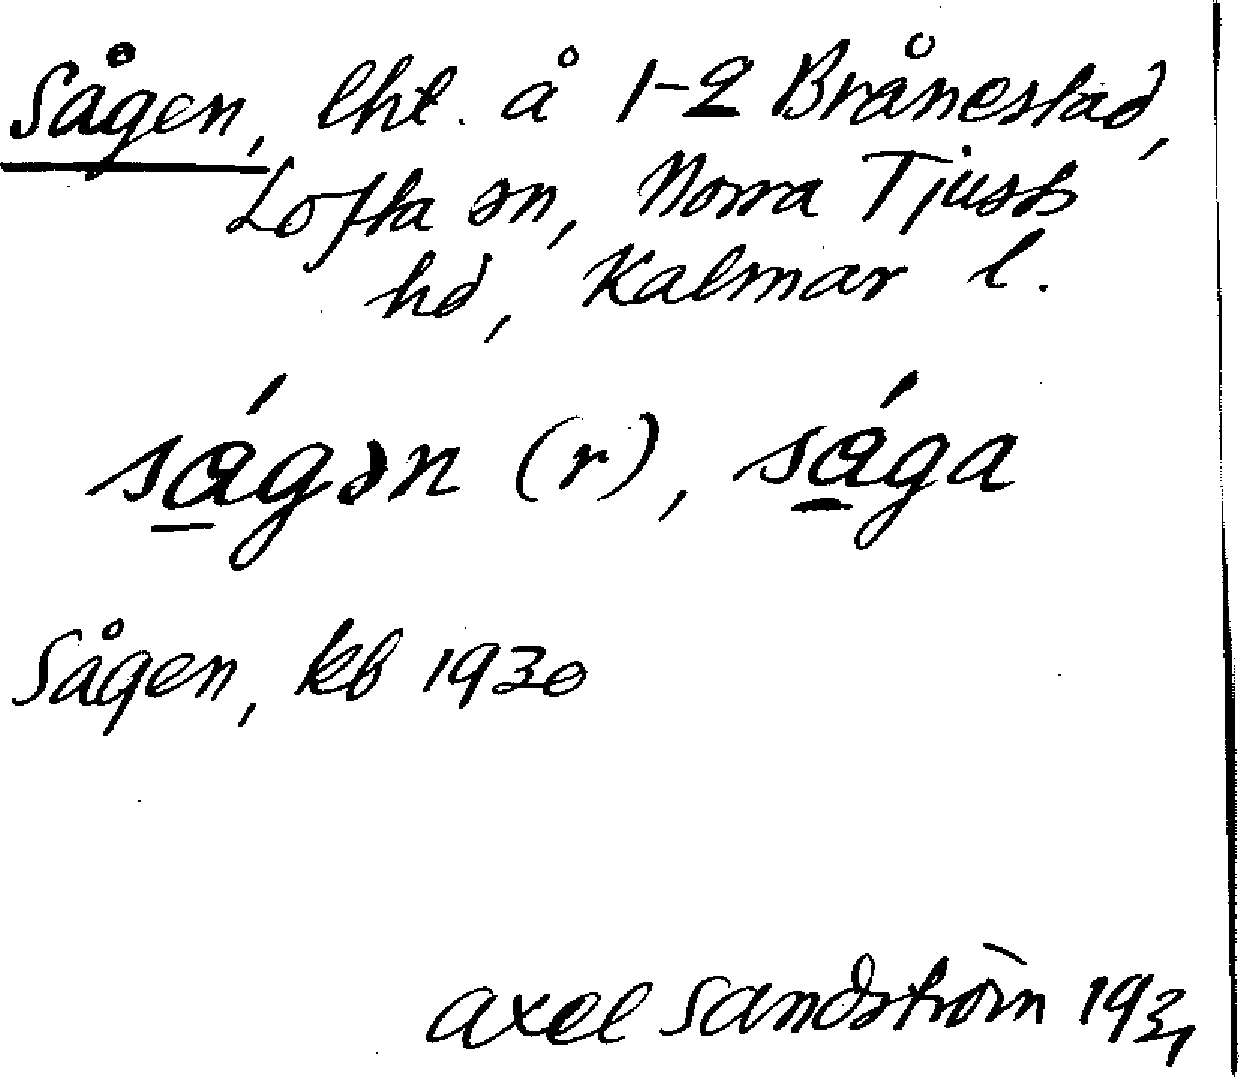 Sågen, lht. å 1-2 Brånestad,
Lofta sn, Norra Tjusts
hd, Kalmar l.
ságən (r), sága
Sågen, kb 1930
Axel Sandström 1931